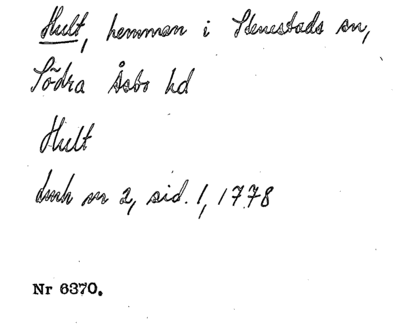 Hult, hemman i Stenestads sn,
Södra Åsbo hd
Hult
dmh nr 2, sid. 1, 1778
Nr 6370.